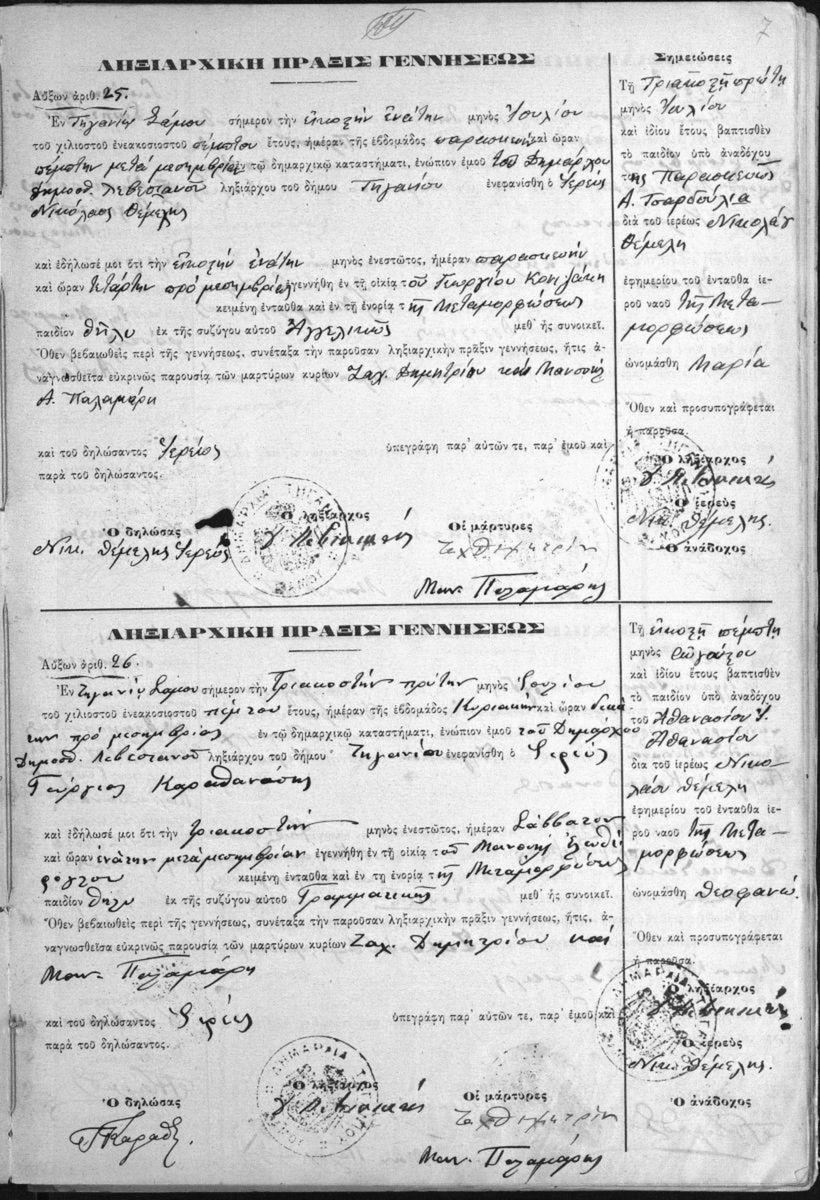 7
ΛΗΞΙΑΡΧΙΚΗ ΠΡΑΞΙΣ ΓΕΝΝΗΣΕΩΣ
Αὔξων ἀριθ. 25.
Ἐν Τηγανίῳ Σάμου σήμερον τὴν εἰκοστὴν ἐνάτην μηνὸς Ἰουλίου
τοῦ χιλιοστοῦ ἐνεακοσιοστοῦ πέμπτου ἔτους, ἡμέραν τῆς ἑβδομάδος παρασκευὴν καὶ ὥραν
πέμπτην μετὰ μεσημβρίαν ἐν τῷ δημαρχικῷ καταστήματι, ἐνώπιον ἐμοῦ τοῦ Δημάρχου
Δημοσθ. ληξιάρχου τοῦ δήμου Τηγανίου ἐνεφανίσθη ὁ Ἱερεὺς
Νικόλαος Θέμελης
καὶ ἐδήλωσέ μοι ὅτι τὴν εἰκοστὴν ἐνάτην μηνὸς ἐνεστῶτος, ἡμέραν παρασκευὴν
καὶ ὥραν τετάρτην πρὸ μεσημβρίας ἐγεννήθη ἐν τῇ οἰκίᾳ τοῦ Γεωργίου
κειμένῃ ἐνταῦθα καὶ ἐν τῇ ἐνορίᾳ τῆς Μεταμορφώσεως
παιδίον θῆλυ ἐκ τῆς συζύγου αὐτοῦ Ἀγγελικῆς μεθ᾽ ἧς συνοικεῖ.
Ὅθεν βεβαιωθεὶς περὶ τῆς γεννήσεως, συνέταξα τὴν παροῦσαν ληξιαρχικὴν πρᾶξιν γεννήσεως, ἥτις ἀ-
ναγνωσθεῖσα εὐκρινῶς παρουσίᾳ τῶν μαρτύρων κυρίων Ζαχ. Δημητρίου καὶ Μανουὴλ
Α. Παλαμάρη
καὶ τοῦ δηλώσαντος Ἱερέως ὑπεγράφη παρ᾽ αὐτῶν τε, παρ᾽ ἐμοῦ καὶ
παρὰ τοῦ δηλώσαντος.
Ὁ δηλώσας
Νικ. Θέμελης Ἱερεὺς
Ὁ ληξίαρχος
Οἱ μάρτυρες
Μαν. Παλαμάρης
Σημειώσεις
Τῇ Τριακοστῇ πρώτῃ
μηνὸς Ἰουλίου
καὶ ἰδίου ἔτους βαπτισθὲν
τὸ παιδίον ὑπὸ ἀναδόχου
τῆς Παρασκευῆς
Α.
διὰ τοῦ ἱερέως Νικολάου
Θέμελη
ἐφημερίου τοῦ ἐνταῦθα ἱε-
ροῦ ναοῦ τῆς Μετα-
μορφώσεως
ὠνομάσθη Μαρία
Ὅθεν καὶ προσυπογράφεται
ἡ παροῦσα.
Ὁ ληξίαρχος
Ὁ ἱερεὺς
Νικ. Θέμελης.
Ὁ ἀνάδοχος
ΛΗΞΙΑΡΧΙΚΗ ΠΡΑΞΙΣ ΓΕΝΝΗΣΕΩΣ
Αὔξων ἀριθ. 26.
Ἐν Τηγανίῳ Σάμου σήμερον τὴν Τριακοστὴν πρώτην μηνὸς Ἰουλίου
τοῦ χιλιοστοῦ ἐνεακοσιοστοῦ πέμπτου ἔτους, ἡμέραν τῆς ἑβδομάδος Κυριακὴν καὶ ὥραν δεκά
την πρὸ μεσημβρίας ἐν τῷ δημαρχικῷ καταστήματι, ἐνώπιον ἐμοῦ τοῦ Δημάρχου
Δημοσθ. ληξιάρχου τοῦ δήμου Τηγανίου ἐνεφανίσθη ὁ Ἱερεὺς
Γεώργιος Καραθανάσης
καὶ ἐδήλωσέ μοι ὅτι τὴν τριακοστὴν μηνὸς ἐνεστῶτος, ἡμέραν Σάββατον
καὶ ὥραν ἐνάτην μετὰ μεσημβρίαν ἐγεννήθη ἐν τῇ οἰκίᾳ τοῦ Μανουὴλ
κειμένῃ ἐνταῦθα καὶ ἐν τῇ ἐνορίᾳ τῆς Μεταμορφώσεως
παιδίον θῆλυ ἐκ τῆς συζύγου αὐτοῦ Γραμματικῆς μεθ᾽ ἧς συνοικεῖ.
Ὅθεν βεβαιωθεὶς περὶ τῆς γεννήσεως, συνέταξα τὴν παροῦσαν ληξιαρχικὴν πρᾶξιν γεννήσεως, ἥτις, ἀ-
ναγνωσθεῖσα εὐκρινῶς παρουσίᾳ τῶν μαρτύρων κυρίων Ζαχ. Δημητρίου καὶ
Μαν. Παλαμάρη
καὶ τοῦ δηλώσαντος Ἱερέως ὑπεγράφη παρ᾽ αὐτῶν τε, παρ᾽ ἐμοῦ καὶ
παρὰ τοῦ δηλώσαντος.
Ὁ δηλώσας
Ὁ ληξίαρχος
Οἱ μάρτυρες
Μαν. Παλαμάρης
Τῇ εἰκοστῇ πέμπτῃ
μηνὸς Αὐγούστου
καὶ ἰδίου ἔτους βαπτισθὲν
τὸ παιδίον ὑπὸ ἀναδόχου
τοῦ Ἀθανασίου
Ἀθανασίου
διὰ τοῦ ἱερέως Νικο-
λάου Θέμελη
ἐφημερίου τοῦ ἐνταῦθα ἱε-
ροῦ ναοῦ τῆς Μετα-
μορφώσεως
ὠνομάσθη Θεοφανώ.
Ὅθεν καὶ προσυπογράφεται
ἡ παροῦσα.
Ὁ ληξίαρχος
Ὁ ἱερεὺς
Νικ. Θέμελης.
Ὁ ἀνάδοχος